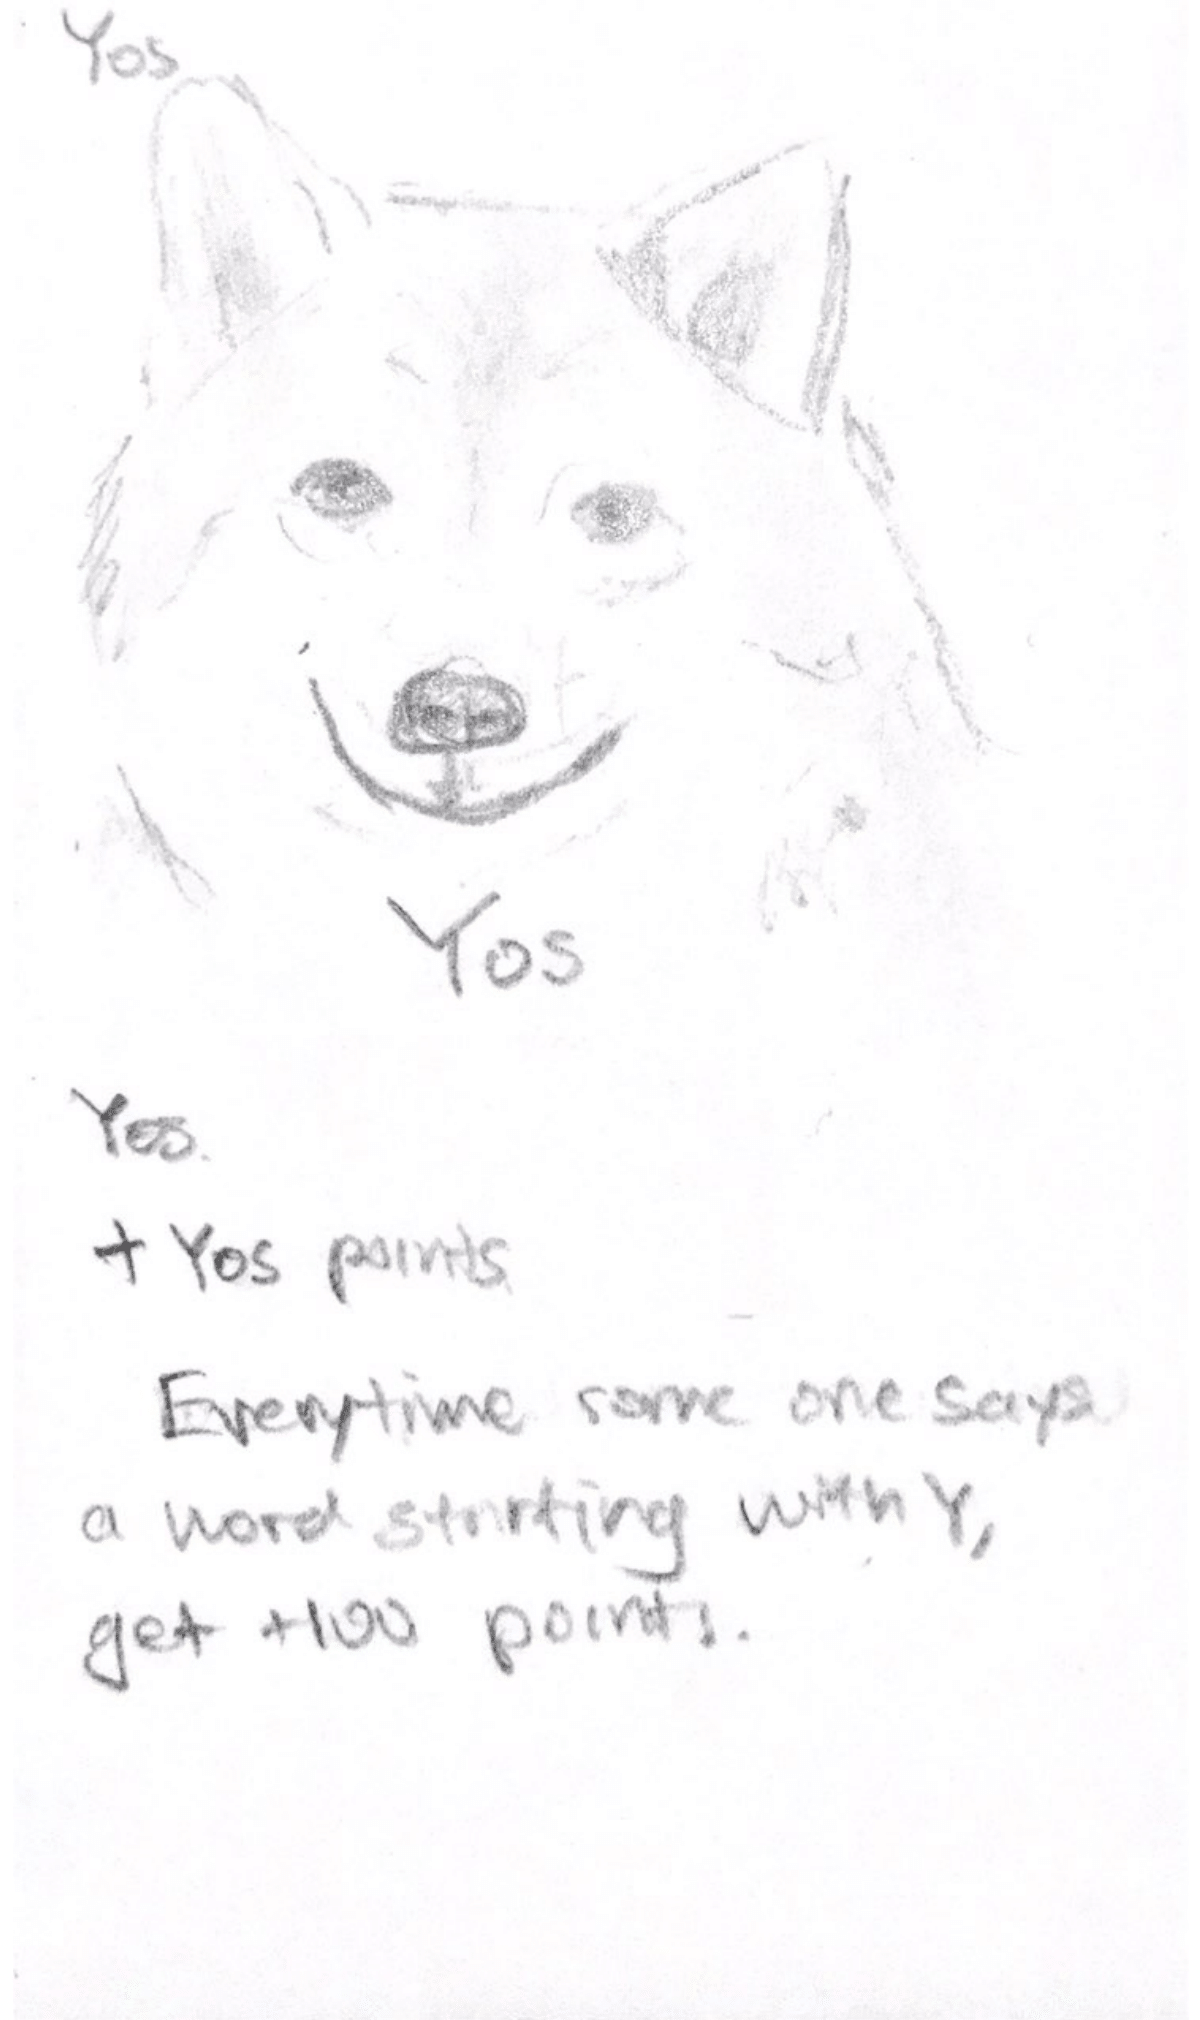 Yos
Yos
Yes.
+ Yos points
Everytime some one says
a word starting with Y,
get +100 points.